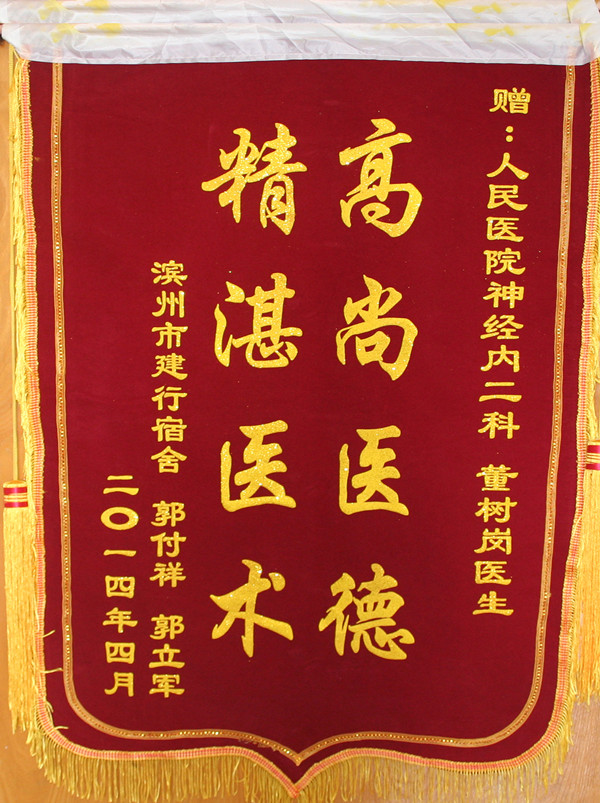 赠：人民医院神经内二科 董树岗医生
高尚医德
精湛医术
滨州市建行宿舍 郭付祥 郭立军
二〇一四年四月